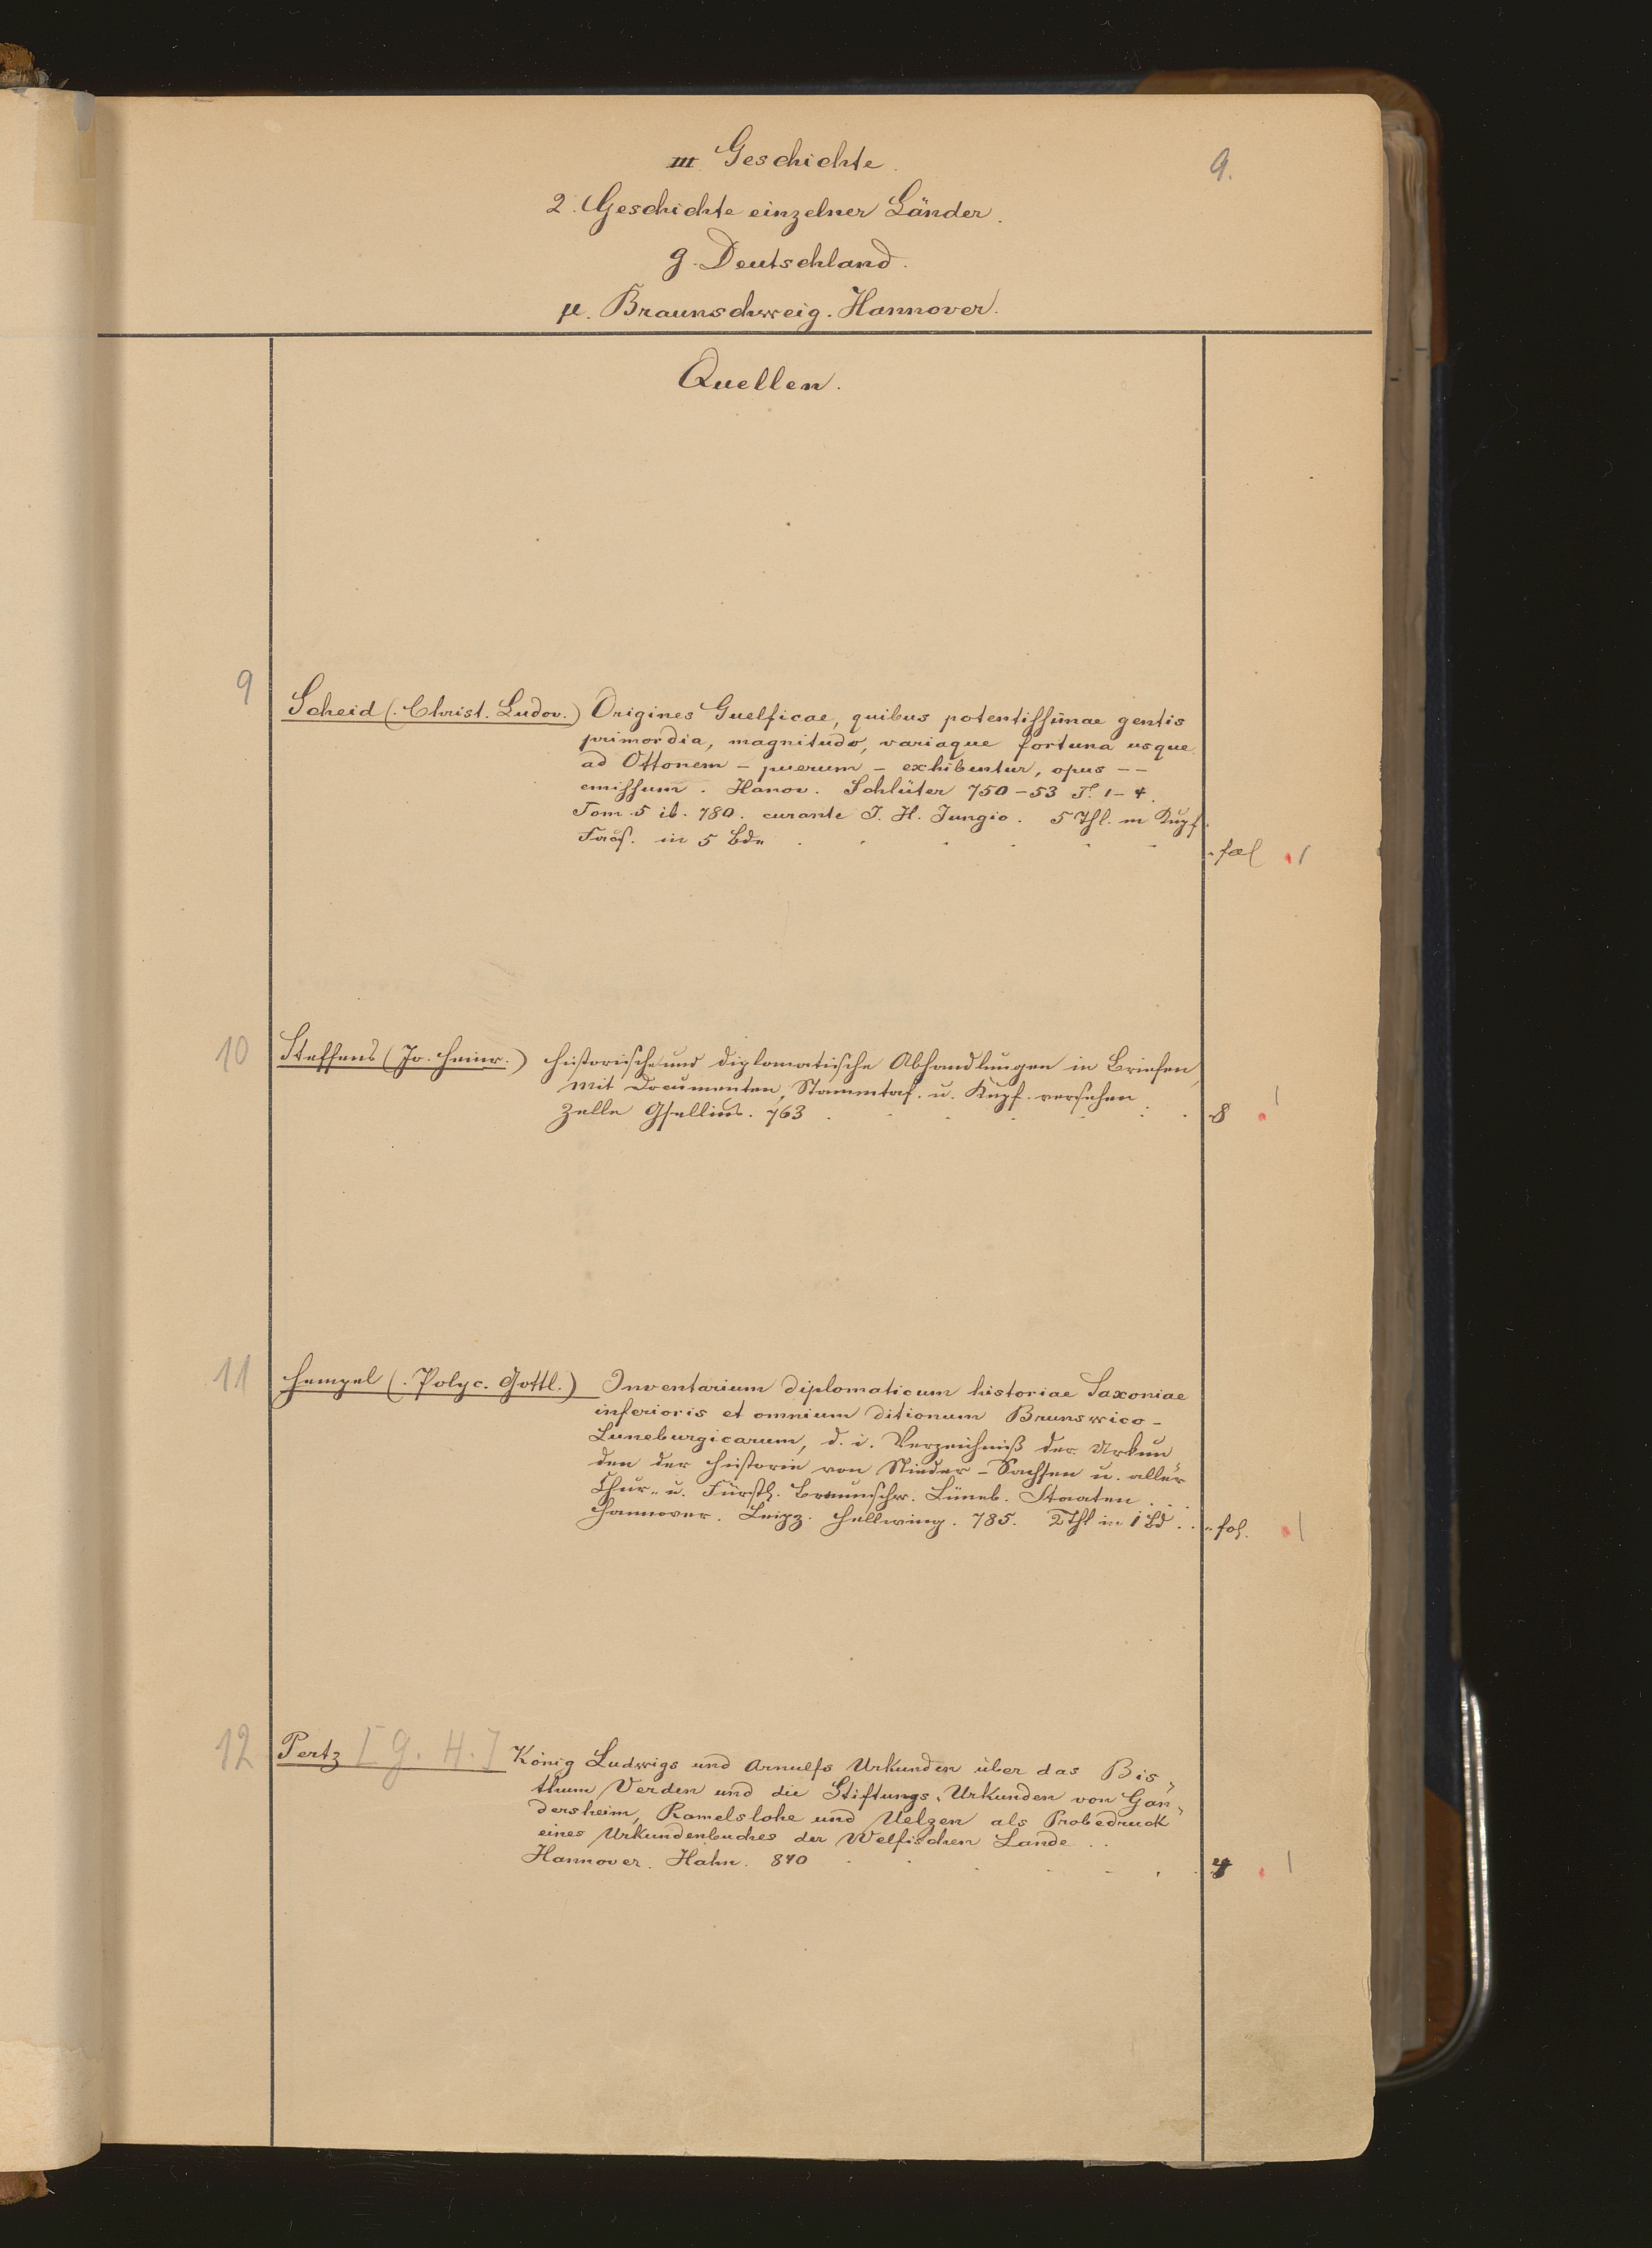 III. Geschichte.
9.
2. Geschichte einzelner Länder.
g. Deutschland.
μ. Braunschweig. Hannover.
Quellen.
9
Scheid (. Christ. Ludov.) Origines Guelficae, quibus potentissimae gentis
primordia, magnitudo, variaque fortuna usque
ad Ottonem – puerum – exhibentur, opus – –
emissum. Hanov. Schlüter 750–53 T. 1–4.
Tom. 5 ib. 780. curante J. H. Jungio. 5 Thl. m Kupf.
in 5 Bdn
fol 1
10
Steffens (Jo. Heinr.) historische und diplomatische Abhandlungen in Briefen,
mit Documenten, Stammtaf. u. Kupf. versehen
Zelle Gsellius. 763
8 1
11
Hempel (. Polyc. Gottl.) Inventarium diplomaticum historiae Saxoniae
inferioris et omnium ditionum Brunswico-
Luneburgicarum, d. i. Verzeichniß der Urkun
den der Historie von Nieder-Sachsen u. aller
Chur- u. Fürstl. Braunschw. Lüneb. Staaten . . .
Hannover. Leipz. Hellwing. 785. 2 Thl in 1 Bd . .
fol. 1
12
Pertz [G. H.] König Ludwigs und Arnulfs Urkunden über das Bis-
thum Verden und die Stiftungs-Urkunden von Gan-
dersheim, Ramelslohe und Uelzen als Probedruck
eines Urkundenbuches der Welfischen Lande . .
Hannover. Hahn. 840
4 1